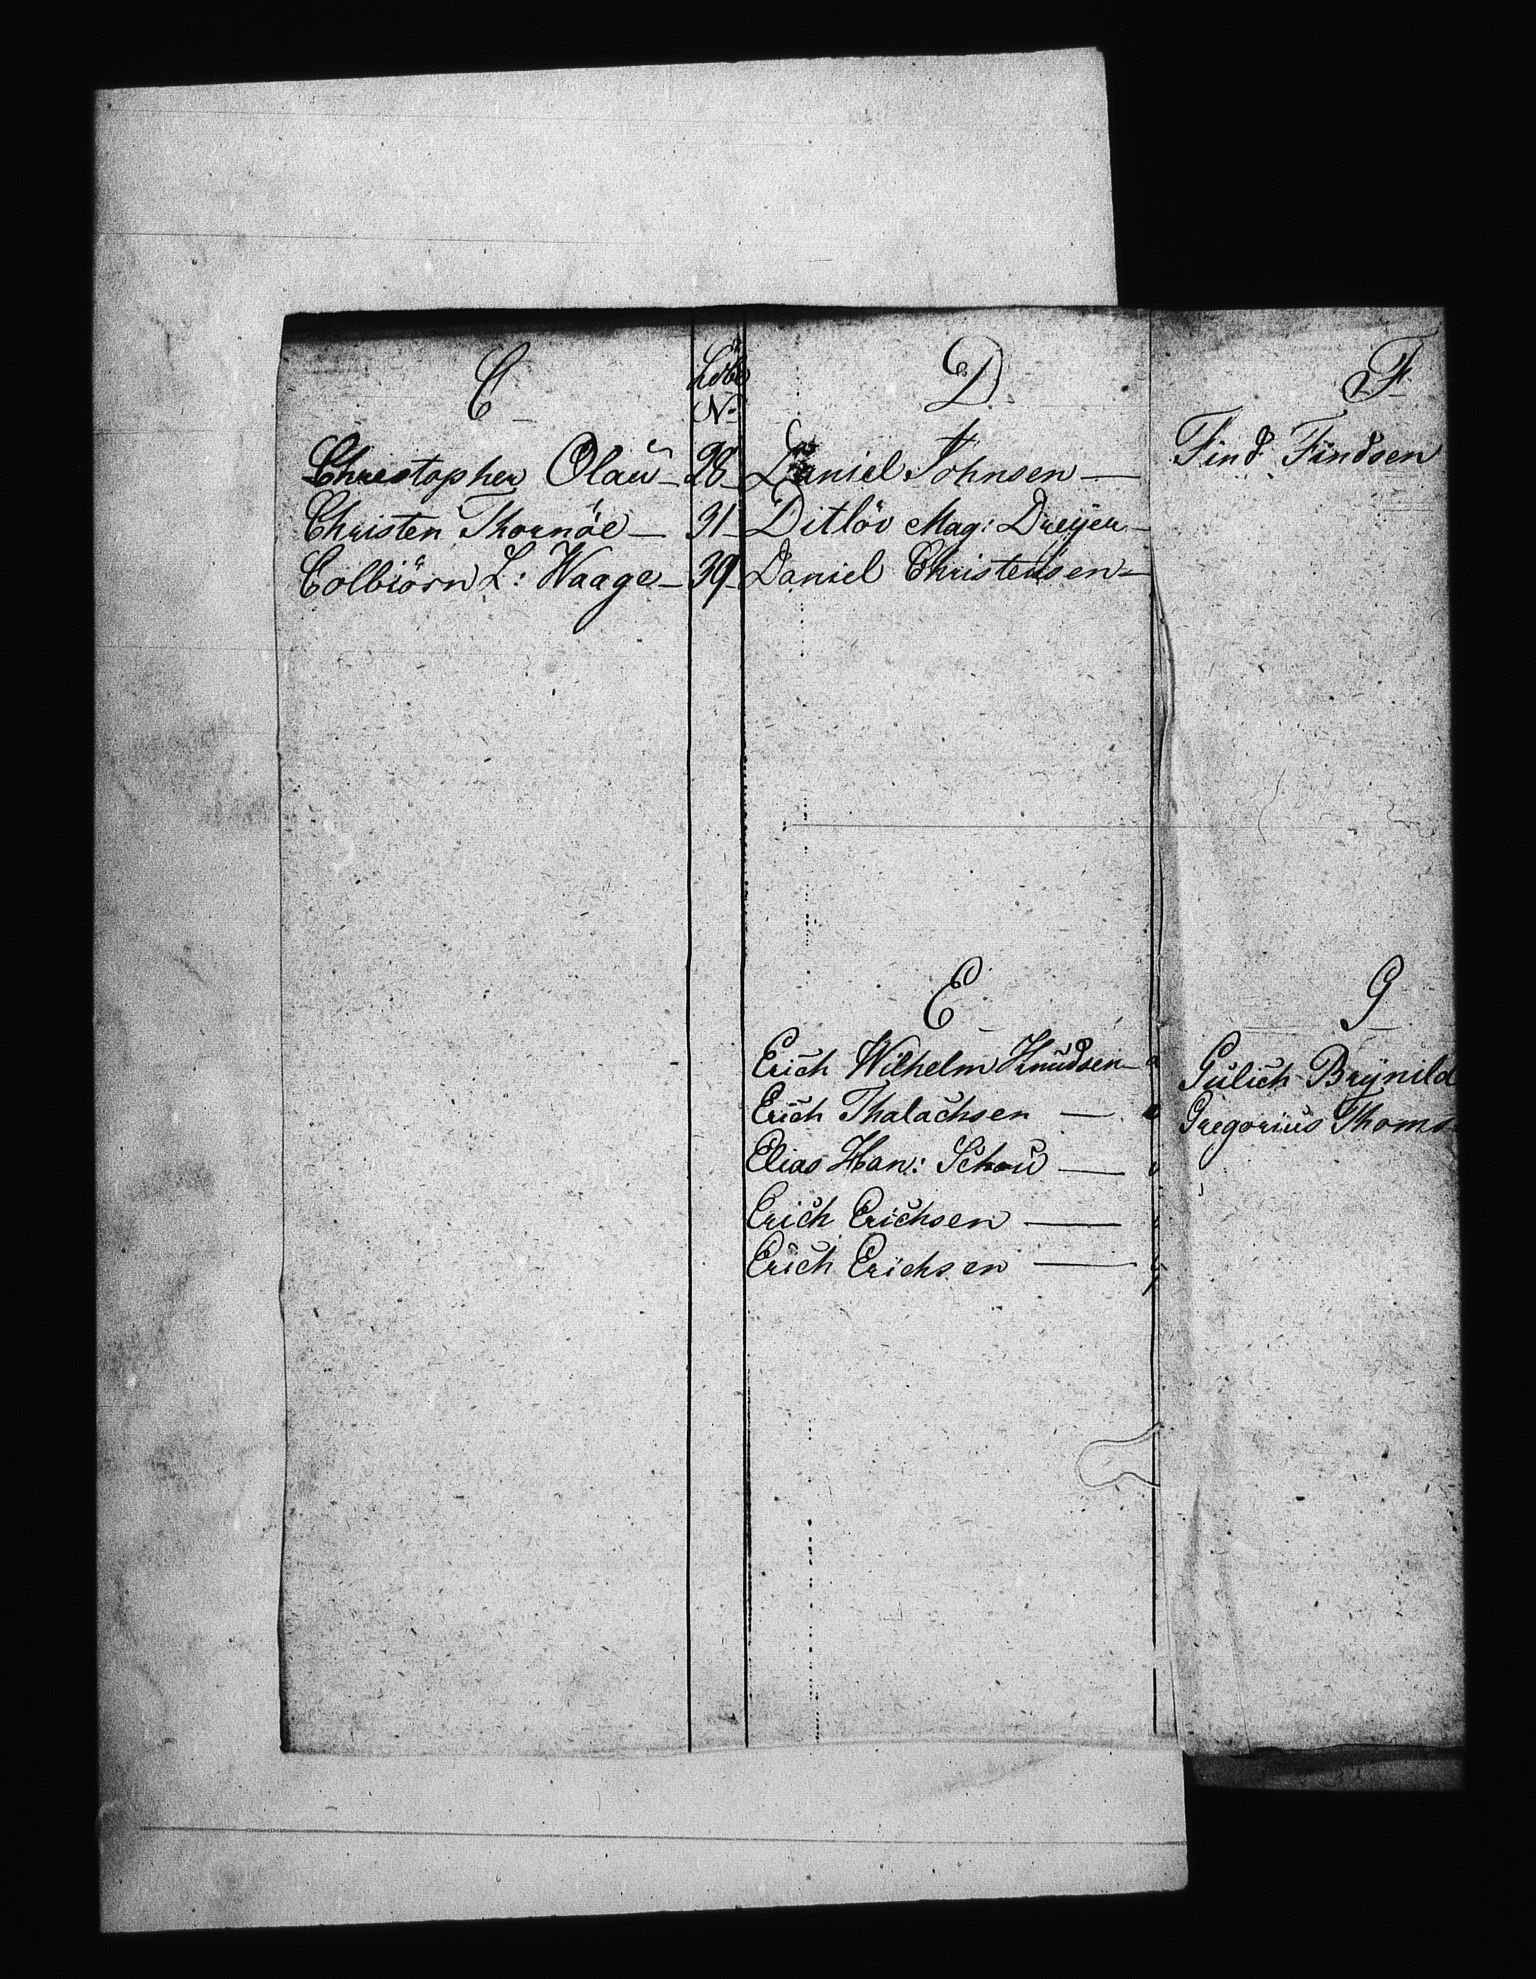 C
Løbe
No
Christopher Olau - 28
Christen Thornöe - 31
Colbiörn L: Waage - 39
D
Daniel Johnsen -
Ditlöv Mag: Dreyer -
Daniel Christensen -
E
Erich Wilhelm Knudsen -
Erich Thalachsen -
Elias Han: Schou -
Erich Erichsen -
Erich Erichsen -
F
Find Findsen
G
Gulich Brynild
Gregorius Thoms